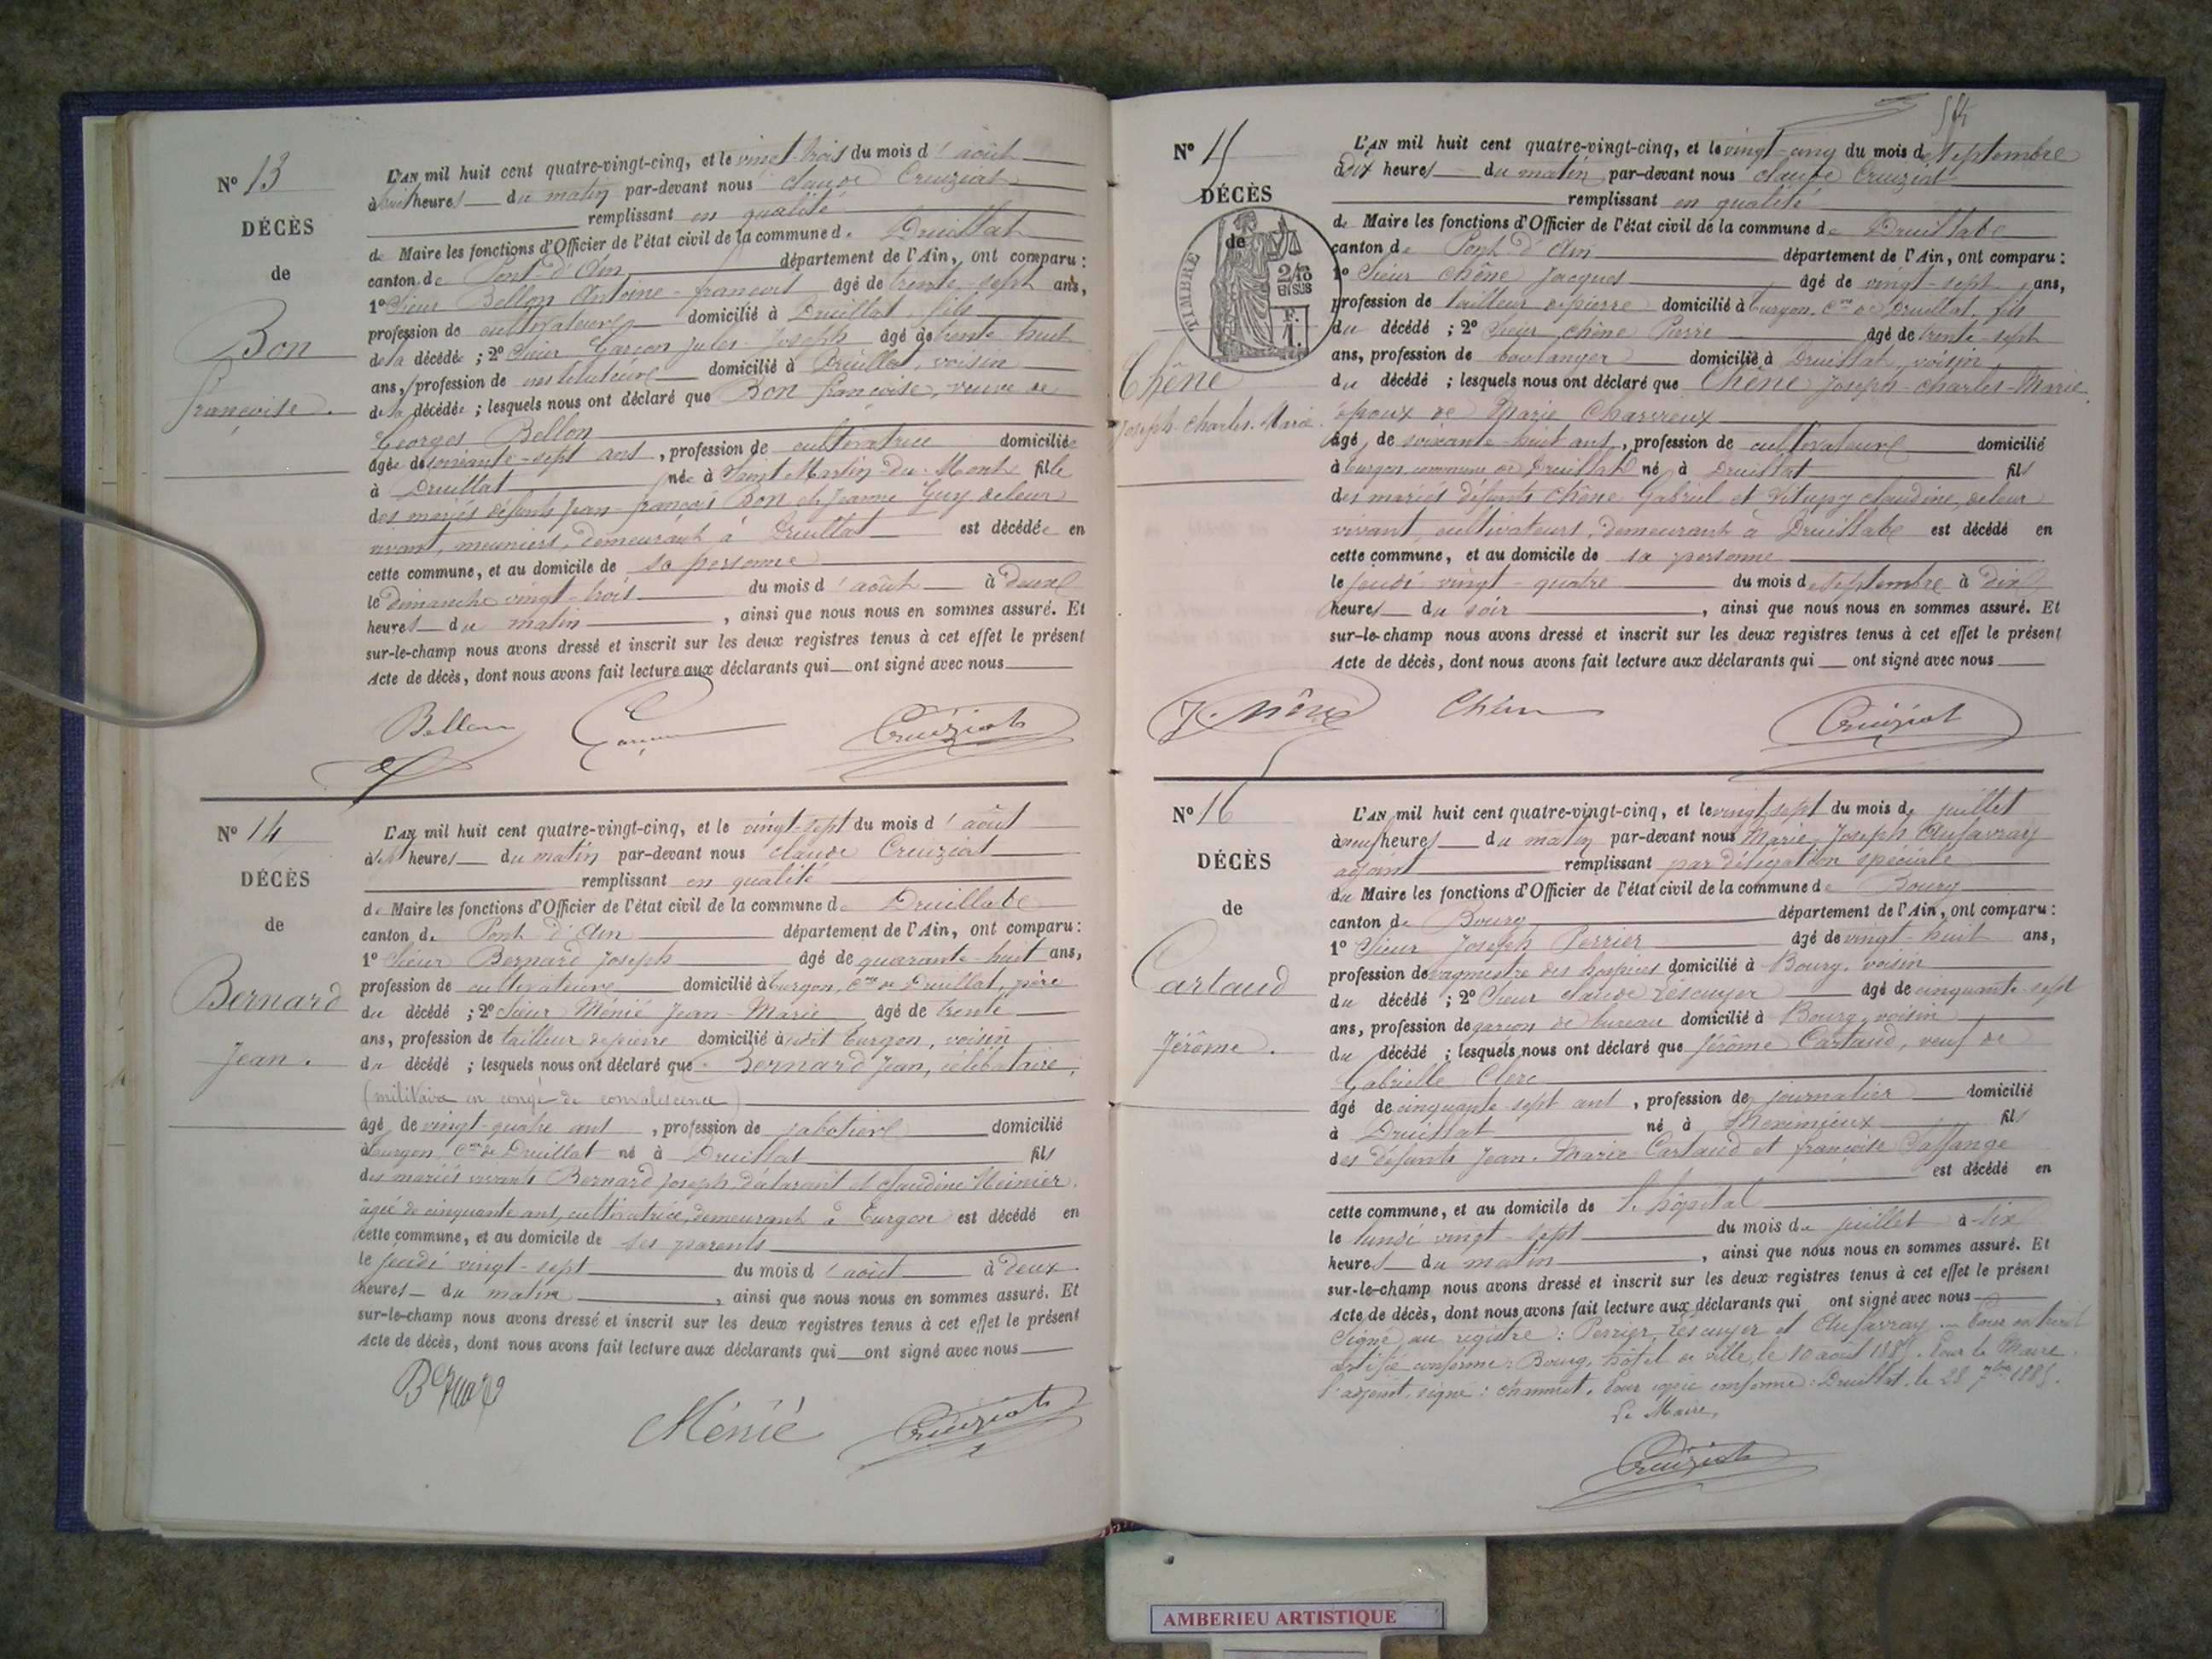 N° 13
DÉCÈS
de
Bon
françoise.
L'AN mil huit cent quatre-vingt-cinq, et le vingt-trois du mois d'août
à huit heures du matin par-devant nous claude Cruiziat
remplissant en qualité
de Maire les fonctions d'Officier de l'état civil de la commune de Druillat
canton de Pont-d'Ain département de l'Ain, ont comparu :
1° Sieur Bellon Antoine-françois âgé de trente-sept ans,
profession de cultivateur domicilié à Druillat, fils
de la décédée ; 2° Sieur Garçon Jules-Joseph âgé de trente huit
ans, profession de instituteur domicilié à Druillat, voisin
de la décédée ; lesquels nous ont déclaré que Bon françoise, veuve de
Georges Bellon
âgée de soixante-sept ans, profession de cultivatrice domiciliée
à Druillat née à Saint-Martin-du-Mont fille
des mariés défunts Jean-françois Bon et Jeanne Guy de leur
vivant, meuniers, demeurant à Druillat est décédée en
cette commune, et au domicile de sa personne
le dimanche vingt-trois du mois d'août à deux
heures du matin, ainsi que nous nous en sommes assuré. Et
sur-le-champ nous avons dressé et inscrit sur les deux registres tenus à cet effet le présent
Acte de décès, dont nous avons fait lecture aux déclarants qui ont signé avec nous
Bellon Garçon Cruiziat
N° 14
DÉCÈS
de
Bernard
Jean.
L'AN mil huit cent quatre-vingt-cinq, et le vingt-sept du mois d'août
à sept heures du matin par-devant nous claude Cruiziat
remplissant en qualité
de Maire les fonctions d'Officier de l'état civil de la commune de Druillat
canton de Pont d'Ain département de l'Ain, ont comparu :
1° Sieur Bernard Joseph âgé de quarante-huit ans,
profession de cultivateur domicilié à Turgon, Cne de Druillat, père
du décédé ; 2° Sieur Ménié Jean-Marie âgé de trente
ans, profession de tailleur de pierre domicilié à dit Turgon, voisin
du décédé ; lesquels nous ont déclaré que Bernard Jean, célibataire,
(militaire en congé de convalescence)
âgé de vingt-quatre ans, profession de sabotier domicilié
à Turgon Cne de Druillat né à Druillat fils
des mariés vivants Bernard Joseph, déclarant et Claudine Meinier,
âgée de cinquante ans, cultivatrice, demeurant à Turgon est décédé en
cette commune, et au domicile de ses parents
le jeudi vingt-sept du mois d'août à deux
heures du matin, ainsi que nous nous en sommes assuré. Et
sur-le-champ nous avons dressé et inscrit sur les deux registres tenus à cet effet le présent
Acte de décès, dont nous avons fait lecture aux déclarants qui ont signé avec nous
Bernard
Ménié Cruiziat
N° 15
DÉCÈS
de
TIMBRE
2/10
EN SUS
F.
1.
Chêne
Joseph-Charles-Marie.
L'AN mil huit cent quatre-vingt-cinq, et le vingt-cinq du mois de Septembre
à dix heures du matin par-devant nous claude Cruiziat
remplissant en qualité
de Maire les fonctions d'Officier de l'état civil de la commune de Druillat
canton de Pont d'Ain département de l'Ain, ont comparu :
1° Sieur Chêne Jacques âgé de vingt-sept ans,
profession de tailleur de pierre domicilié à Turgon, Cne de Druillat, fils
du décédé ; 2° Sieur Chêne Pierre âgé de trente-sept
ans, profession de boulanger domicilié à Druillat, voisin
du décédé ; lesquels nous ont déclaré que Chêne Joseph-Charles-Marie
époux de Marie Charvieux
âgé de soixante-huit ans, profession de cultivateur domicilié
à Turgon commune de Druillat né à Druillat fils
des mariés défunts Chêne Gabriel et claudine, de leur
vivant, cultivateurs, demeurant à Druillat est décédé en
cette commune, et au domicile de sa personne
le jeudi vingt-quatre du mois de Septembre à dix
heures du soir, ainsi que nous nous en sommes assuré. Et
sur-le-champ nous avons dressé et inscrit sur les deux registres tenus à cet effet le présent
Acte de décès, dont nous avons fait lecture aux déclarants qui ont signé avec nous
J. Chêne Chêne Cruiziat
N° 16
DÉCÈS
de
Cartaud
Jérôme.
L'AN mil huit cent quatre-vingt-cinq, et le vingt sept du mois de juillet
à neuf heures du matin par-devant nous Marie-Joseph Aufavray
adjoint remplissant par délégation spéciale
du Maire les fonctions d'Officier de l'état civil de la commune de Bourg
canton de Bourg département de l'Ain, ont comparu :
1° Sieur Joseph Perrier âgé de vingt-huit ans,
profession de vaguemestre des hospices domicilié à Bourg, voisin
du décédé ; 2° Sieur claude Lescuyer âgé de cinquante-sept
ans, profession de garçon de bureau domicilié à Bourg, voisin
du décédé ; lesquels nous ont déclaré que Jérôme Cartaud, veuf de
Gabrielle Clerc
âgé de cinquante-sept ans, profession de journalier domicilié
à Druillat né à Meximieux fils
des défunts Jean-Marie Cartaud et françoise
est décédé en
cette commune, et au domicile de l'hôpital
le lundi vingt-sept du mois de juillet à six
heures du matin, ainsi que nous nous en sommes assuré. Et
sur-le-champ nous avons dressé et inscrit sur les deux registres tenus à cet effet le présent
Acte de décès, dont nous avons fait lecture aux déclarants qui ont signé avec nous
Signé au registre : Perrier, Lescuyer et Aufavray. Pour extrait
certifié conforme : Bourg, hôtel de ville, le 10 août 1885. Pour le Maire.
l'adjoint, signé : . Pour copie conforme : Druillat, le 28 7bre 1885.
Le Maire,
Cruiziat
AMBERIEU ARTISTIQUE